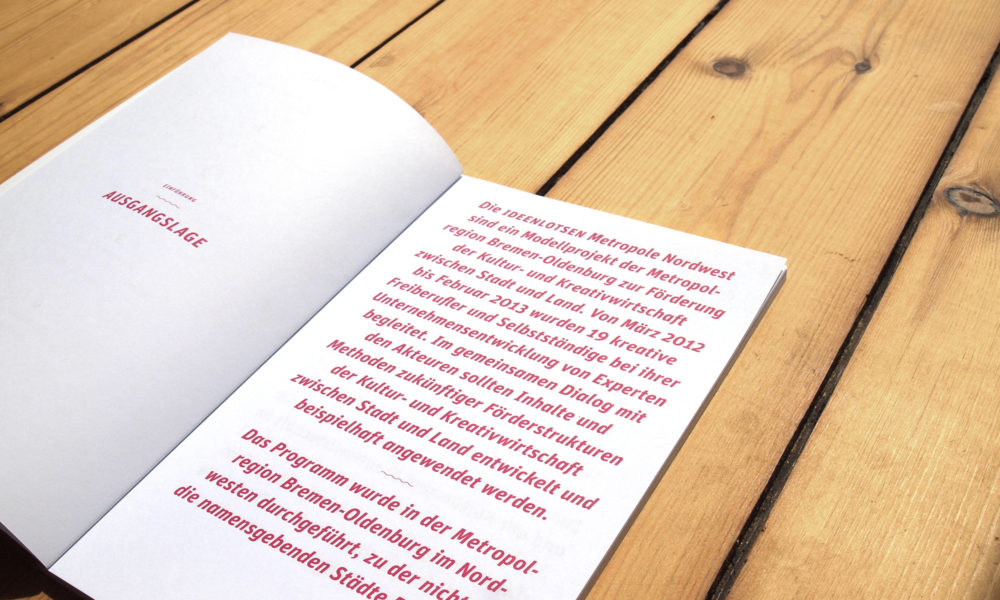 EINFÜHRUNG
AUSGANGSLAGE
Die IDEENLOTSEN Metropole Nordwest
sind ein Modellprojekt der Metropol-
region Bremen-Oldenburg zur Förderung
der Kultur- und Kreativwirtschaft
zwischen Stadt und Land. Von März 2012
bis Februar 2013 wurden 19 kreative
Freiberufler und Selbstständige bei ihrer
Unternehmensentwicklung von Experten
begleitet. Im gemeinsamen Dialog mit
den Akteuren sollten Inhalte und
Methoden zukünftiger Förderstrukturen
der Kultur- und Kreativwirtschaft
zwischen Stadt und Land entwickelt und
beispielhaft angewendet werden.
Das Programm wurde in der Metropol-
region Bremen-Oldenburg im Nord-
westen durchgeführt, zu der nicht
die namensgebenden Städte